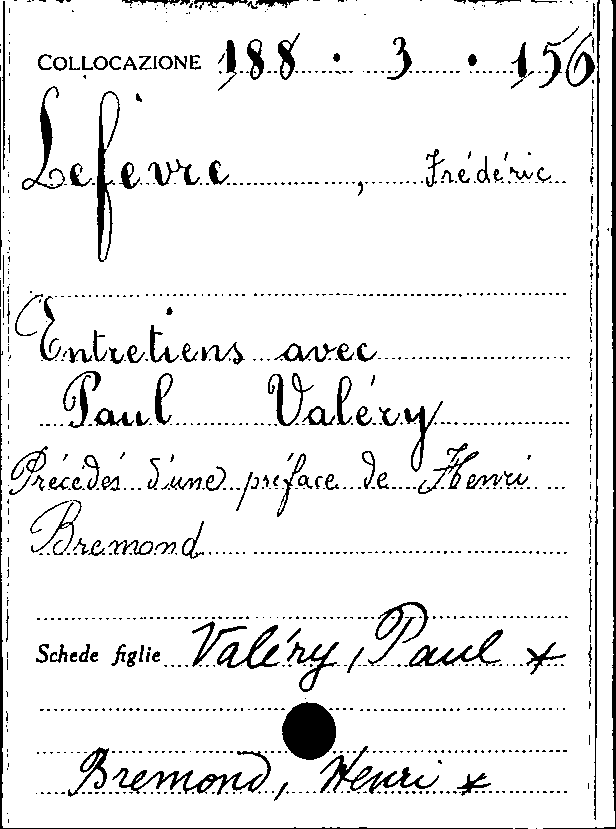 COLLOCAZIONE 188 . 3 . 156
Lefevre, Frédéric
Entretiens avec
Paul Valéry
Précédés d'une préface de Henri
Bremond
Schede figlie Valéry, Paul *
Bremond, Henri *